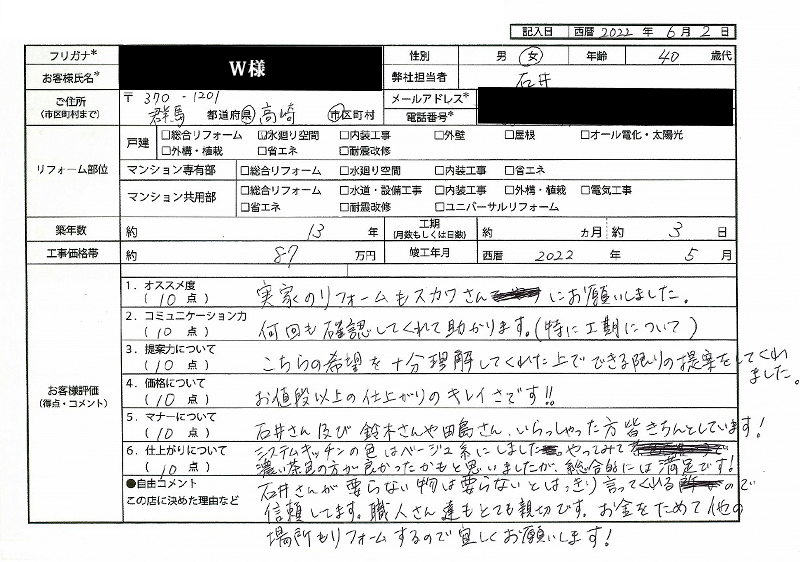 記入日 西暦 2022 年 6月 2 日
フリガナ* W様 性別 男 女 年齢 40 歳代
お客様氏名* 弊社担当者 石井
ご住所 (市区町村まで) 〒 370 - 1201 群馬 都道府県 高崎 市区町村 メールアドレス* 電話番号*
リフォーム部位 戸建 □総合リフォーム ☑水廻り空間 □内装工事 □外壁 □屋根 □オール電化・太陽光
□外構・植栽 □省エネ □耐震改修
マンション専有部 □総合リフォーム □水廻り空間 □内装工事 □省エネ
マンション共用部 □総合リフォーム □水道・設備工事 □内装工事 □外構・植栽 □電気工事
□省エネ □耐震改修 □ユニバーサルリフォーム
築年数 約 13 年 工期 (月数もしくは日数) 約 カ月 約 3 日
工事価格帯 約 87 万円 竣工年月 西暦 2022 年 5 月
お客様評価 (得点・コメント)
1．オススメ度 (10 点) 実家のリフォームもスカワさんにお願いしました。
2．コミュニケーション力 (10 点) 何回も確認してくれて助かります。(特に工期について)
3．提案力について (10 点) こちらの希望を十分理解してくれた上でできる限りの提案をしてくれました。
4．価格について (10 点) お値段以上の仕上がりのキレイさです!!
5．マナーについて (10 点) 石井さん及び鈴木さんや田島さん、いらっしゃった方皆きちんとしています!
6．仕上がりについて (10 点) システムキッチンの色はベージュ系にしました。やってみて
濃い茶色の方が良かったかもと思いましたが、総合的には満足です!
●自由コメント この店に決めた理由など 石井さんが要らない物は要らないとはっきり言ってくれるので
信頼してます。職人さん達もとても親切です。お金をためて他の
場所もリフォームするので宜しくお願いします!